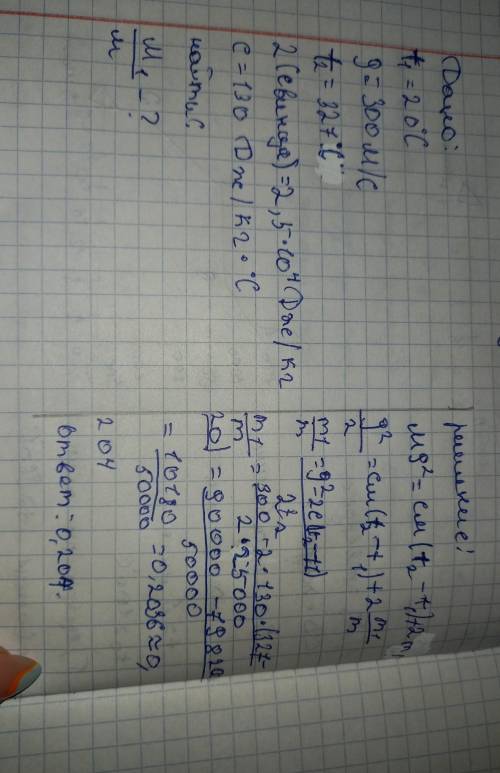 Дано:
t₁ = 20°C
g = 300 м/с
t₂ = 327°C
2(свинца) = 2,5·10⁴ Дж/кг
c = 130 Дж/кг·°C
найти:
M₁/м - ?
решение:
Mg² = cм(t₂ - t₁) + 2m₁
g²/2 = cм(t₂ - t₁) + 2 m₁/m
m1/m = g² - 2c(t₂ - t1)/2t₂
m1/m = 300 - 2·130·(327-
20)/2·25000 = 90000 - 79820/50000
= 10180/50000 = 0,2036 ≈ 0,
204
ответ = 0,204.